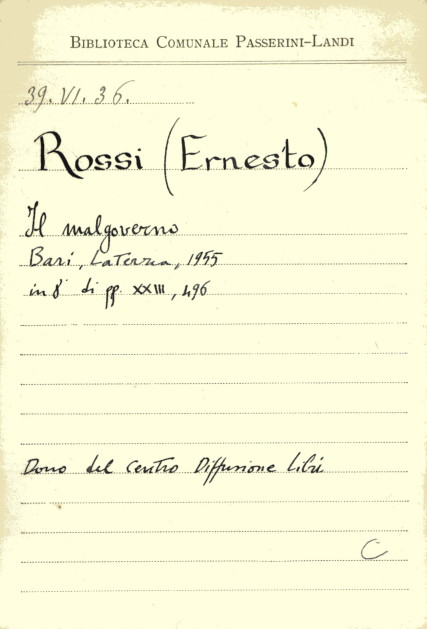 BIBLIOTECA COMUNALE PASSERINI-LANDI
39. VI. 36.
Rossi (Ernesto)
Il malgoverno
Bari, Laterza, 1955
in 8° di pp. XXIII, 496
Dono del Centro Diffusione Libri
C